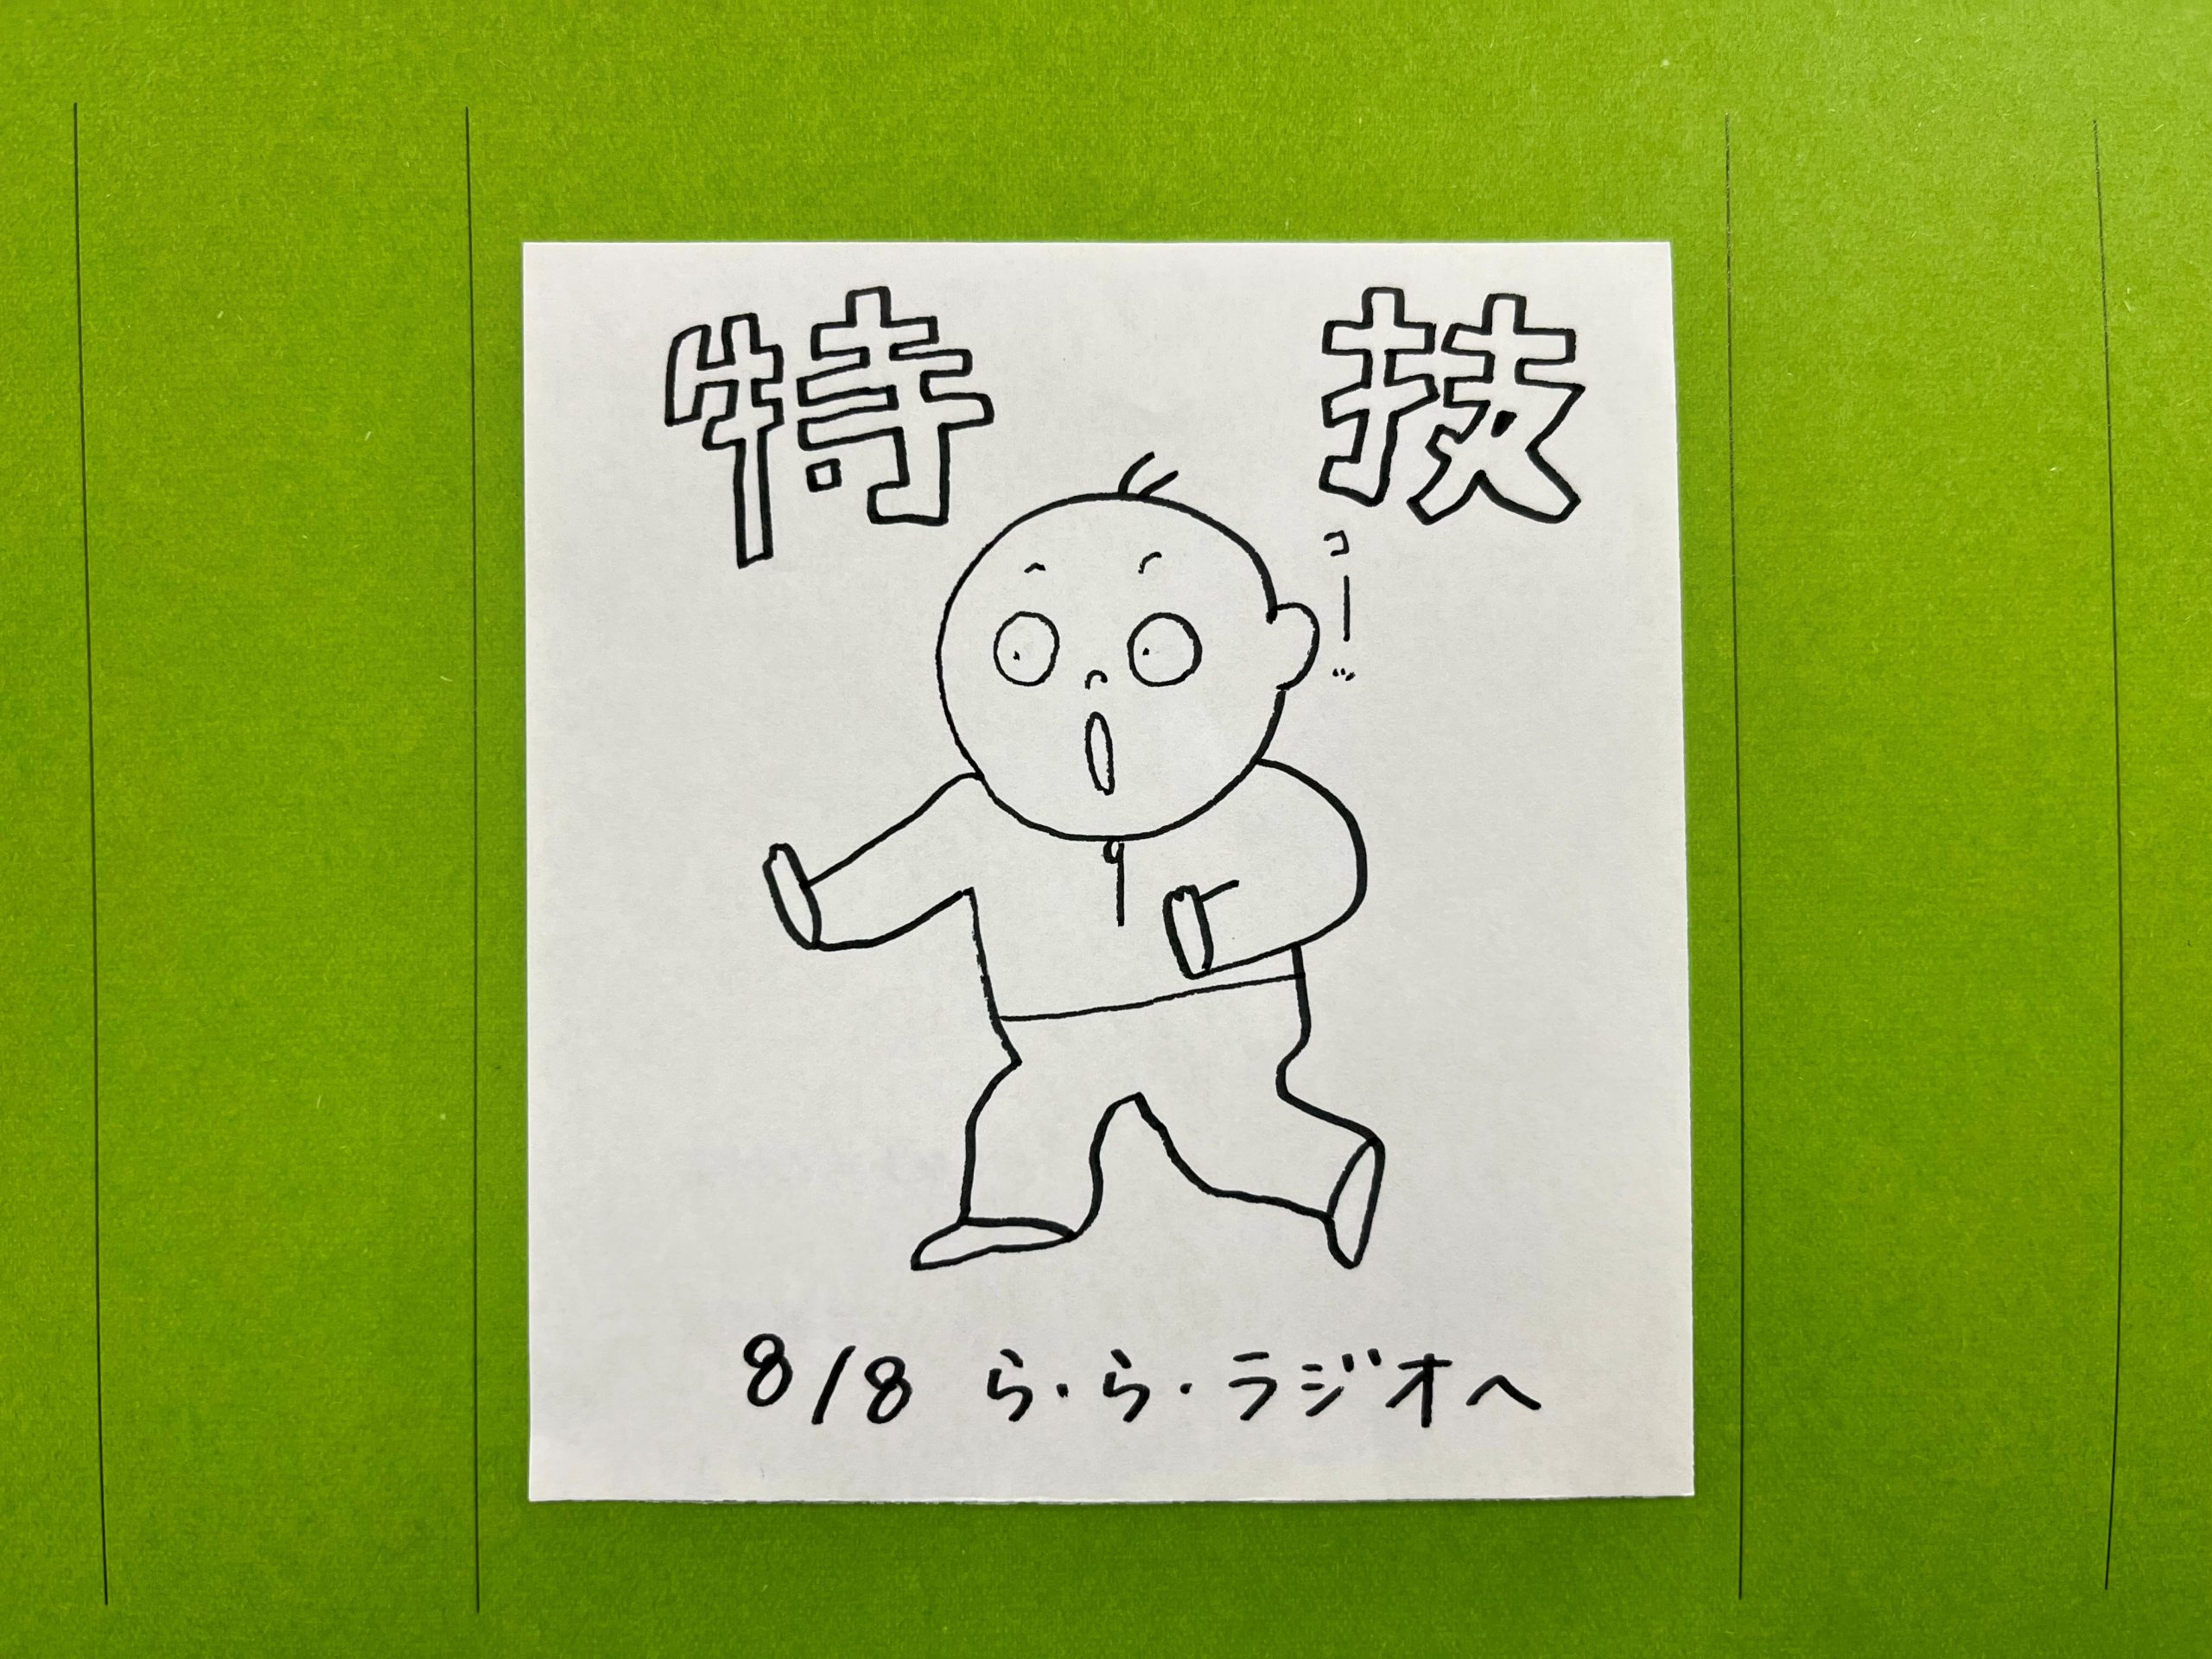 特技
コーッ
8/8 ら・ら・ラジオへ